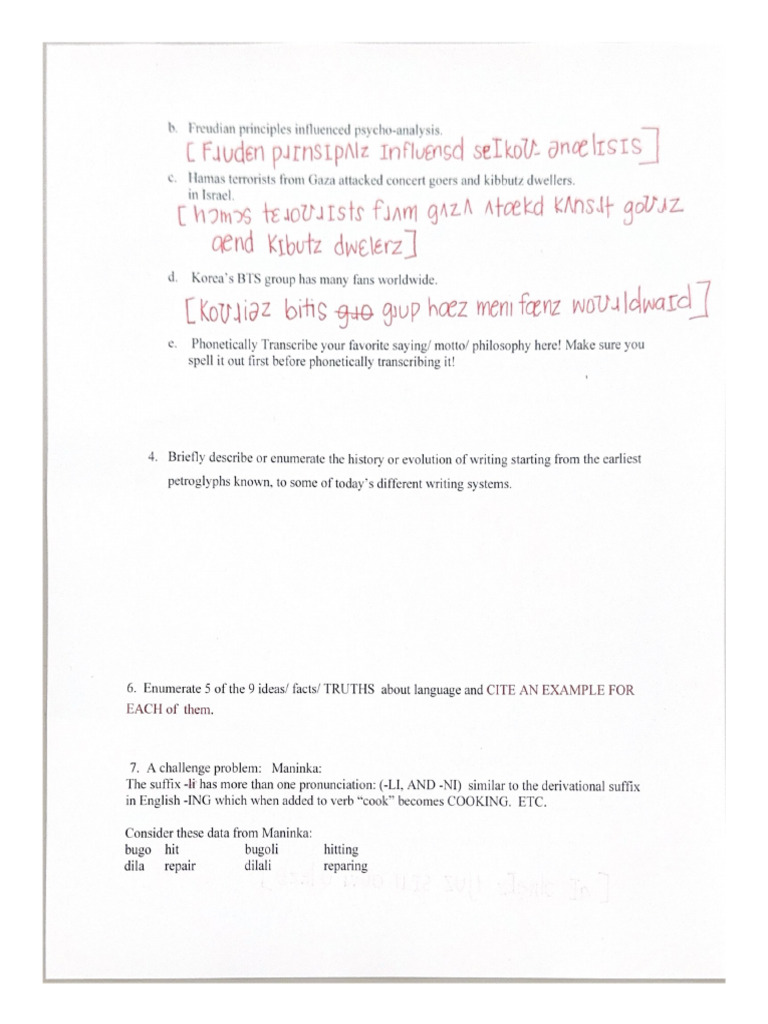 b. Freudian principles influenced psycho-analysis.
[Fɹudɛn pɹɪnsɪpʌlz ɪnfluɛnsd seɪkoʊ- ənælɪsɪs]
c. Hamas terrorists from Gaza attacked concert goers and kibbutz dwellers.
in Israel.
[hɔmɔs tɛɹoʊɹɪsts fɹʌm gʌzʌ ʌtækd kʌnsɹt goʊɹz
ænd kɪbutz dwɛlɛrz]
d. Korea's BTS group has many fans worldwide.
[Koʊɹiəz bitis gɹup hæz mɛnɪ fænz woʊɹldwaɪd]
e. Phonetically Transcribe your favorite saying/ motto/ philosophy here! Make sure you
spell it out first before phonetically transcribing it!
4. Briefly describe or enumerate the history or evolution of writing starting from the earliest
petroglyphs known, to some of today's different writing systems.
6. Enumerate 5 of the 9 ideas/ facts/ TRUTHS about language and CITE AN EXAMPLE FOR
EACH of them.
7. A challenge problem: Maninka:
The suffix -li has more than one pronunciation: (-LI, AND -NI) similar to the derivational suffix
in English -ING which when added to verb “cook” becomes COOKING. ETC.
Consider these data from Maninka:
bugo hit bugoli hitting
dila repair dilali reparing